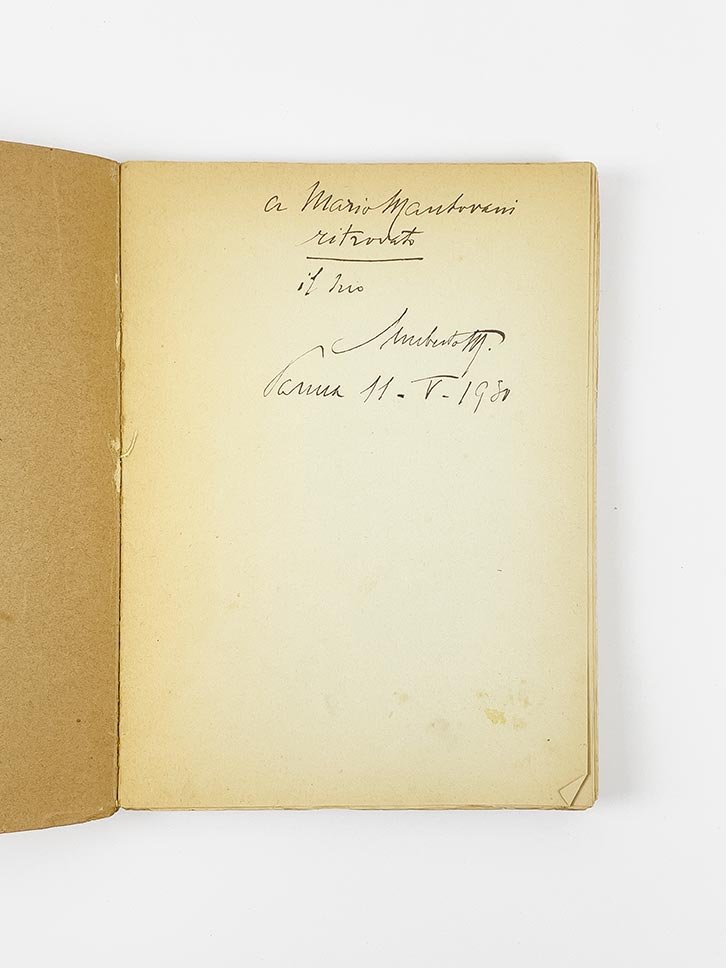 a Mario Mantovani
ritrovato
il suo
Umberto M.
Parma 11-V-1930